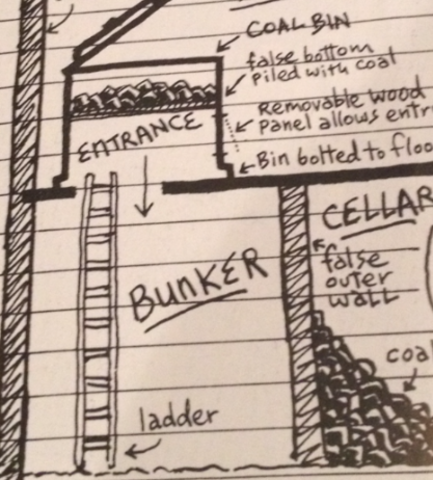 COAL BIN
false bottom
piled with coal
Removable wood
panel allows
Bin bolted to
ENTRANCE
CELLAR
false
outer
wall
BUNKER
ladder